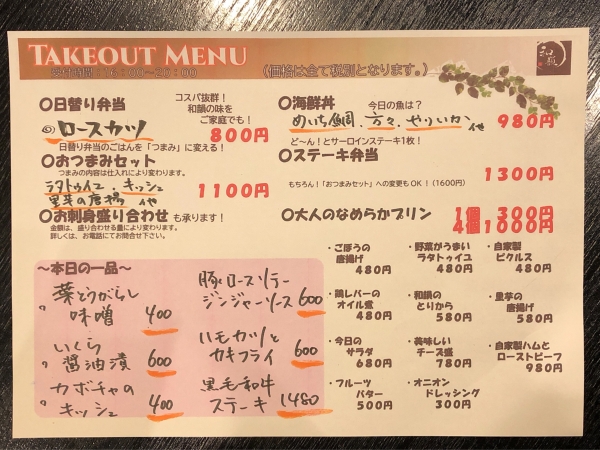 TAKEOUT MENU
受付時間:16:00~20:00
(価格は全て税別となります。)
和韻
○日替り弁当
コスパ抜群!
和韻の味を
ご家庭でも!
ロースカツ
800円
日替り弁当のごはんを「つまみ」に変える!
○おつまみセット
つまみの内容は仕入れにより変わります。
ラタトゥイユ、キッシュ
里芋の唐揚 他
1100円
○お刺身盛り合わせ も承ります!
金額は、盛り合わせる量により変わります。
詳しくは、お電話にてお問合せ下さい。
○海鮮丼
今日の魚は?
めいち鯛、カマス、やりいか 他
980円
ど~ん!とサーロインステーキ1枚!
○ステーキ弁当
1300円
もちろん!「おつまみセット」への変更もOK!(1600円)
○大人のなめらかプリン
1個 300円
4個1000円
~本日の一品~
葉とうがらし
味噌 400
いくら
醤油漬 600
カボチャの
キッシュ 400
豚ロースソテー
ジンジャーソース 600
ハモカツと
カキフライ 600
黒毛和牛
ステーキ 1480
・ごぼうの
唐揚げ
480円
・野菜がうまい
ラタトゥイユ
480円
・自家製
ピクルス
480円
・鶏レバーの
オイル煮
480円
・和韻の
とりから
580円
・里芋の
唐揚げ
580円
・今日の
サラダ
680円
・美味しい
チーズ盛
780円
・自家製ハムと
ローストビーフ
980円
・フルーツ
バター
500円
・オニオン
ドレッシング
300円